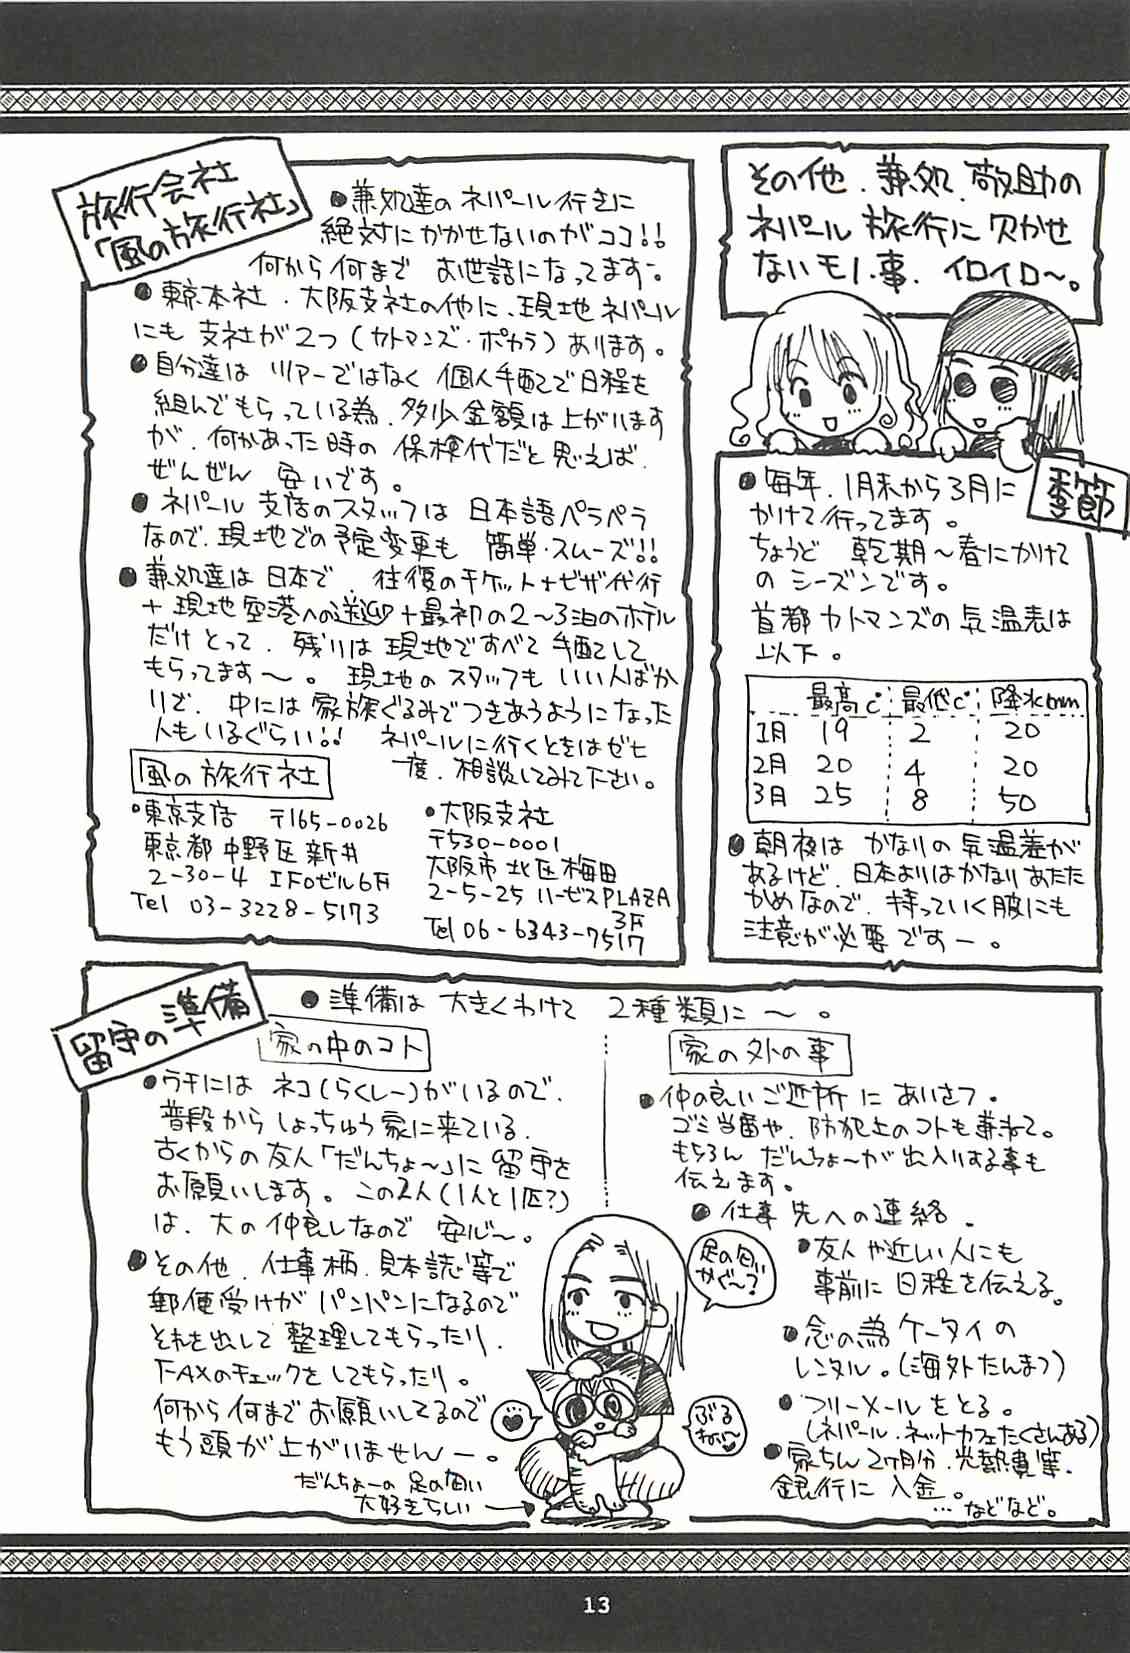 その他、兼処、敬助の
ネパール旅行に欠かせ
ないモノ、事、イロイロ〜。
旅行会社
「風の旅行社」
●兼処達のネパール行きに
絶対にかかせないのがココ!!
何から何まで お世話になってますー。
●東京本社・大阪支社の他に、現地ネパール
にも支社が2つ(カトマンズ・ポカラ)あります。
●自分達は ツアーではなく 個人手配で日程を
組んでもらっている為、多少金額は上がります
が、何かあった時の 保検代だと思えば、
ぜんぜん 安いです。
●ネパール支店のスタッフは 日本語ペラペラ
なので、現地での予定変更も 簡単・スムーズ!!
●兼処達は日本で、往復のチケット+ビザ代行
+現地空港への送迎+最初の2〜3泊のホテル
だけとって、残りは現地ですべて手配して
もらってます〜。現地のスタッフもいい人ばか
りで、中には家族ぐるみでつきあうようになった
人もいるぐらい!! ネパールに行くときはゼヒ
一度、相談してみて下さい。
風の旅行社
・東京支店 〒165-0026
東京都中野区新井
2-30-4 IFOビル6F
Tel 03-3228-5173
・大阪支社
〒530-0001
大阪市北区梅田
2-5-25 ハービスPLAZA
3F
Tel 06-6343-7517
季節
●毎年、1月末から3月に
かけて行ってます。
ちょうど 乾期〜春にかけて
のシーズンです。
首都カトマンズの気温表は
以下。
最高℃ 最低℃ 降水(mm
1月 19 2 20
2月 20 4 20
3月 25 8 50
●朝夜は かなりの気温差が
あるけど、日本よりはかなりあたた
かめなので、持っていく服にも
注意が必要ですー。
留守の準備
●準備は 大きくわけて 2種類に〜。
家の中のコト
●ウチには ネコ(らくしー)がいるので、
普段から しょっちゅう家に来ている、
古くからの友人「だんちょ〜」に留守を
お願いします。この2人(1人と1匹?)
は、大の仲良しなので 安心〜。
●その他、仕事柄、見本誌等で
郵便受けが パンパンになるので
それを出して整理してもらったり、
FAXのチェックをしてもらったり。
何から何までお願いしてるので
もう頭が上がいませんー。
だんちょーの足の匂い
大好きらしい
足の匂い
かぐ〜?
ぶる
にゃい〜
家の外の事
●仲の良いご近所にあいさつ。
ゴミ当番や、防犯上のコトも兼ねて。
もちろん だんちょ〜が出入りする事も
伝えます。
●仕事先への連絡、
●友人や近しい人にも
事前に日程を伝える。
●念の為 ケータイの
レンタル。(海外たんまつ)
●フリーメールをとる。
(ネパール、ネットカフェたくさんある)
●家ちん2ヶ月分、光熱費等、
銀行に入金。
…などなど。
13